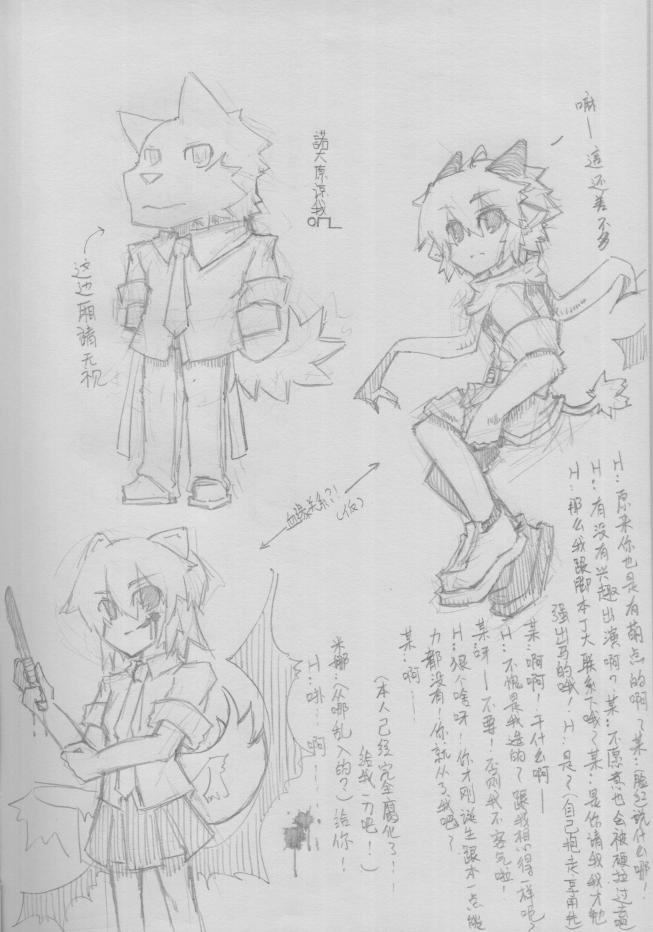 嘛——這还差不多
諾大原諒我orz
这边厢請无视
血缘关系?!
(仮)
H:原来你也是有萌点的啊~某:脸红说什么哪!
H:有没有兴趣出演啊?某:不愿意也会被硬拉过去
H:那么我跟脚本丁大联系下哦~某:是你請我我才勉
强出马的哦!H:是~(自己抱走豆角吃)
某:啊啊!干什么啊——
H:不愧是我造的~跟我想心得一样吧~
某呀——不要!否则我不客气啦!
H:狠个啥呀!你才刚诞生跟本一点能
力都没有!你就从了我吧~
某:啊……
(本人已经完全腐化了!!
给我一刀吧!)
米娜:从哪乱入的?)给你!
H:啡……啊……